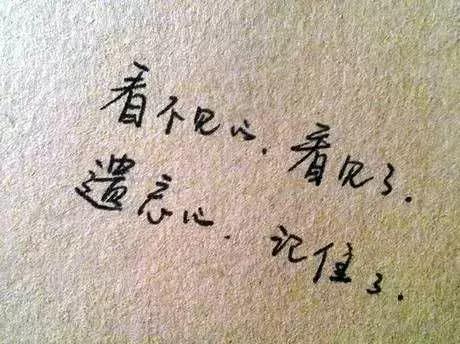 看不见的.看见了.
遗忘的.记住了.